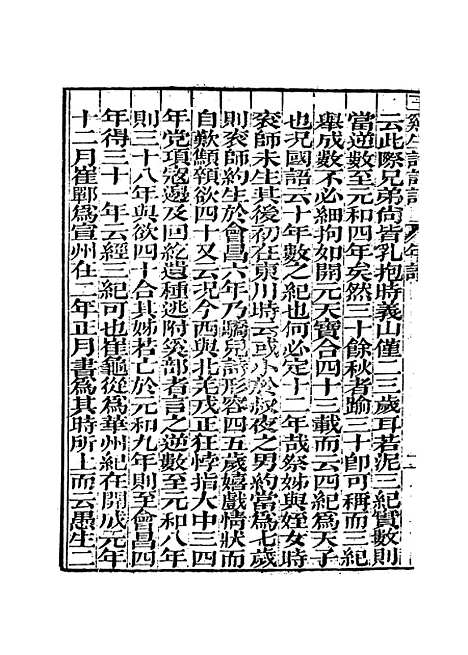 云此際兄弟尚皆乳抱時義山僅二三歲耳若泥三紀實數則
當逆數至元和四年矣然三十餘秋者踰三十卽可稱而三紀
舉成數不必細拘如開元天寶合四十三載而云四紀爲天子
也況國語云十年數之紀也何必定十二年哉祭姊與姪女時
袞師未生其後初在東川時云或小於叔夜之男約當爲七歲
則袞師約生於會昌六年乃驕兒詩形容四五歲嬉戲情狀而
自歎顦顇欲四十又云況今西與北羌戎正狂悖指大中三四
年党項寇邊及回紇遺種逃附奚部者言之逆數至元和八年
則三十八年與欲四十合其姊若亡於元和九年則至會昌四
年得三十一年云經三紀可也崔龜從爲華州紀在開成元年
十二月崔鄲爲宣州在二年正月書爲其時所上而云愚生二